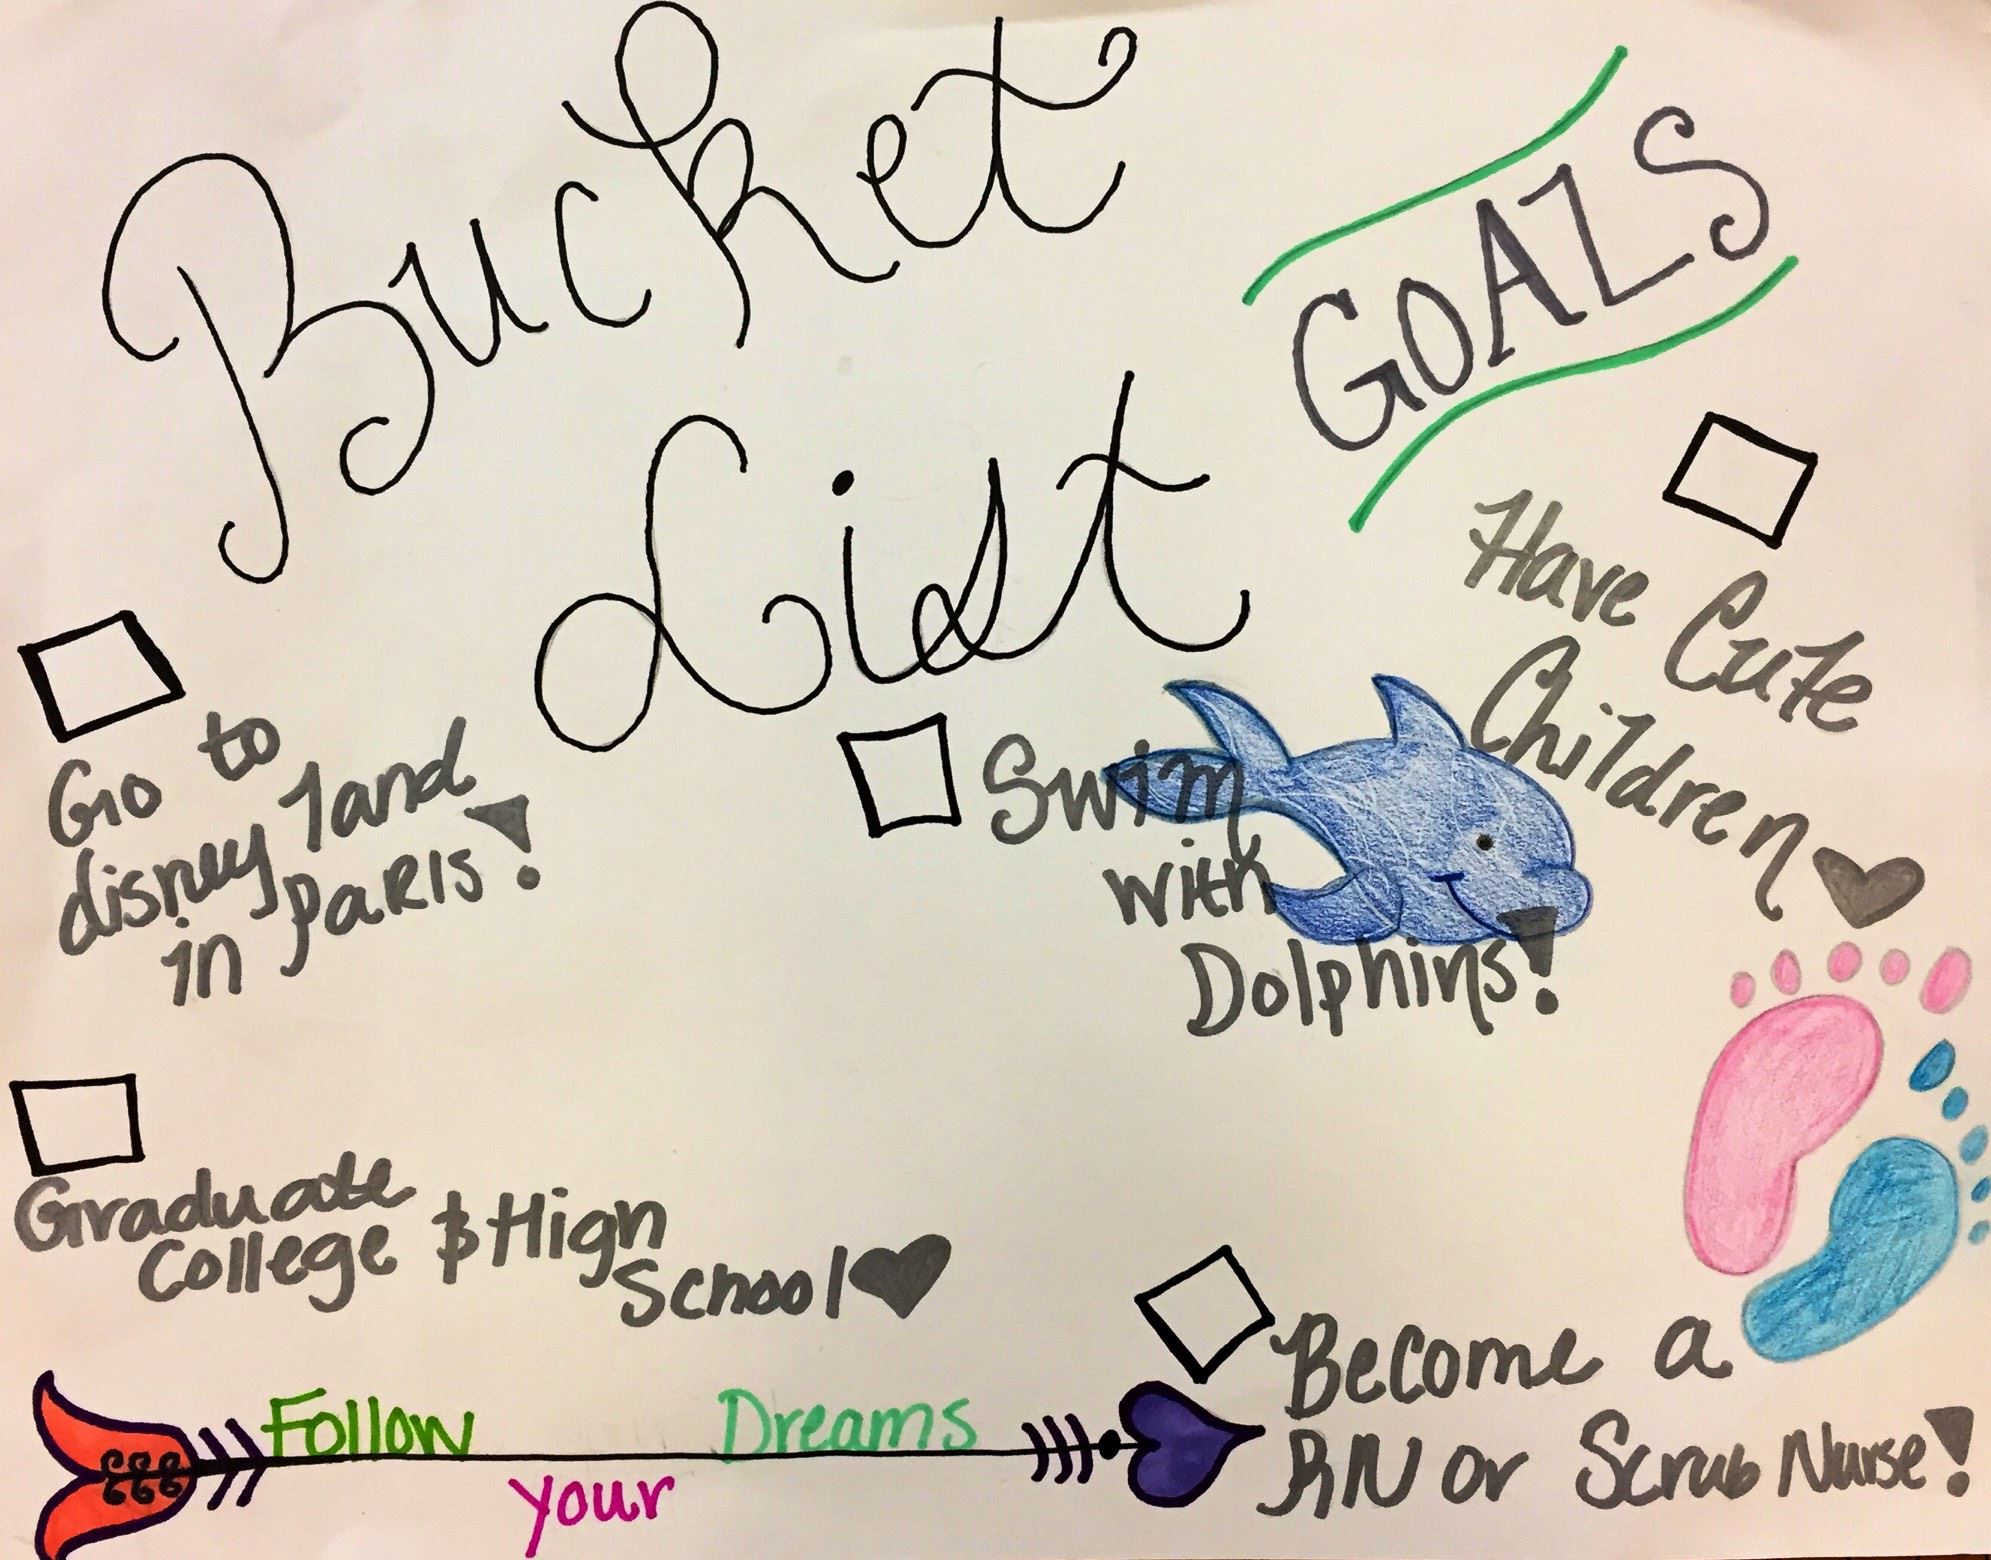 Bucket
List
GOALS
Have Cute
Children
Go to
disney land
in PaRIS!
Swim
with
Dolphins!
Graduate
College & High
School
Become a
RN or Scrub Nurse!
Follow
your
Dreams